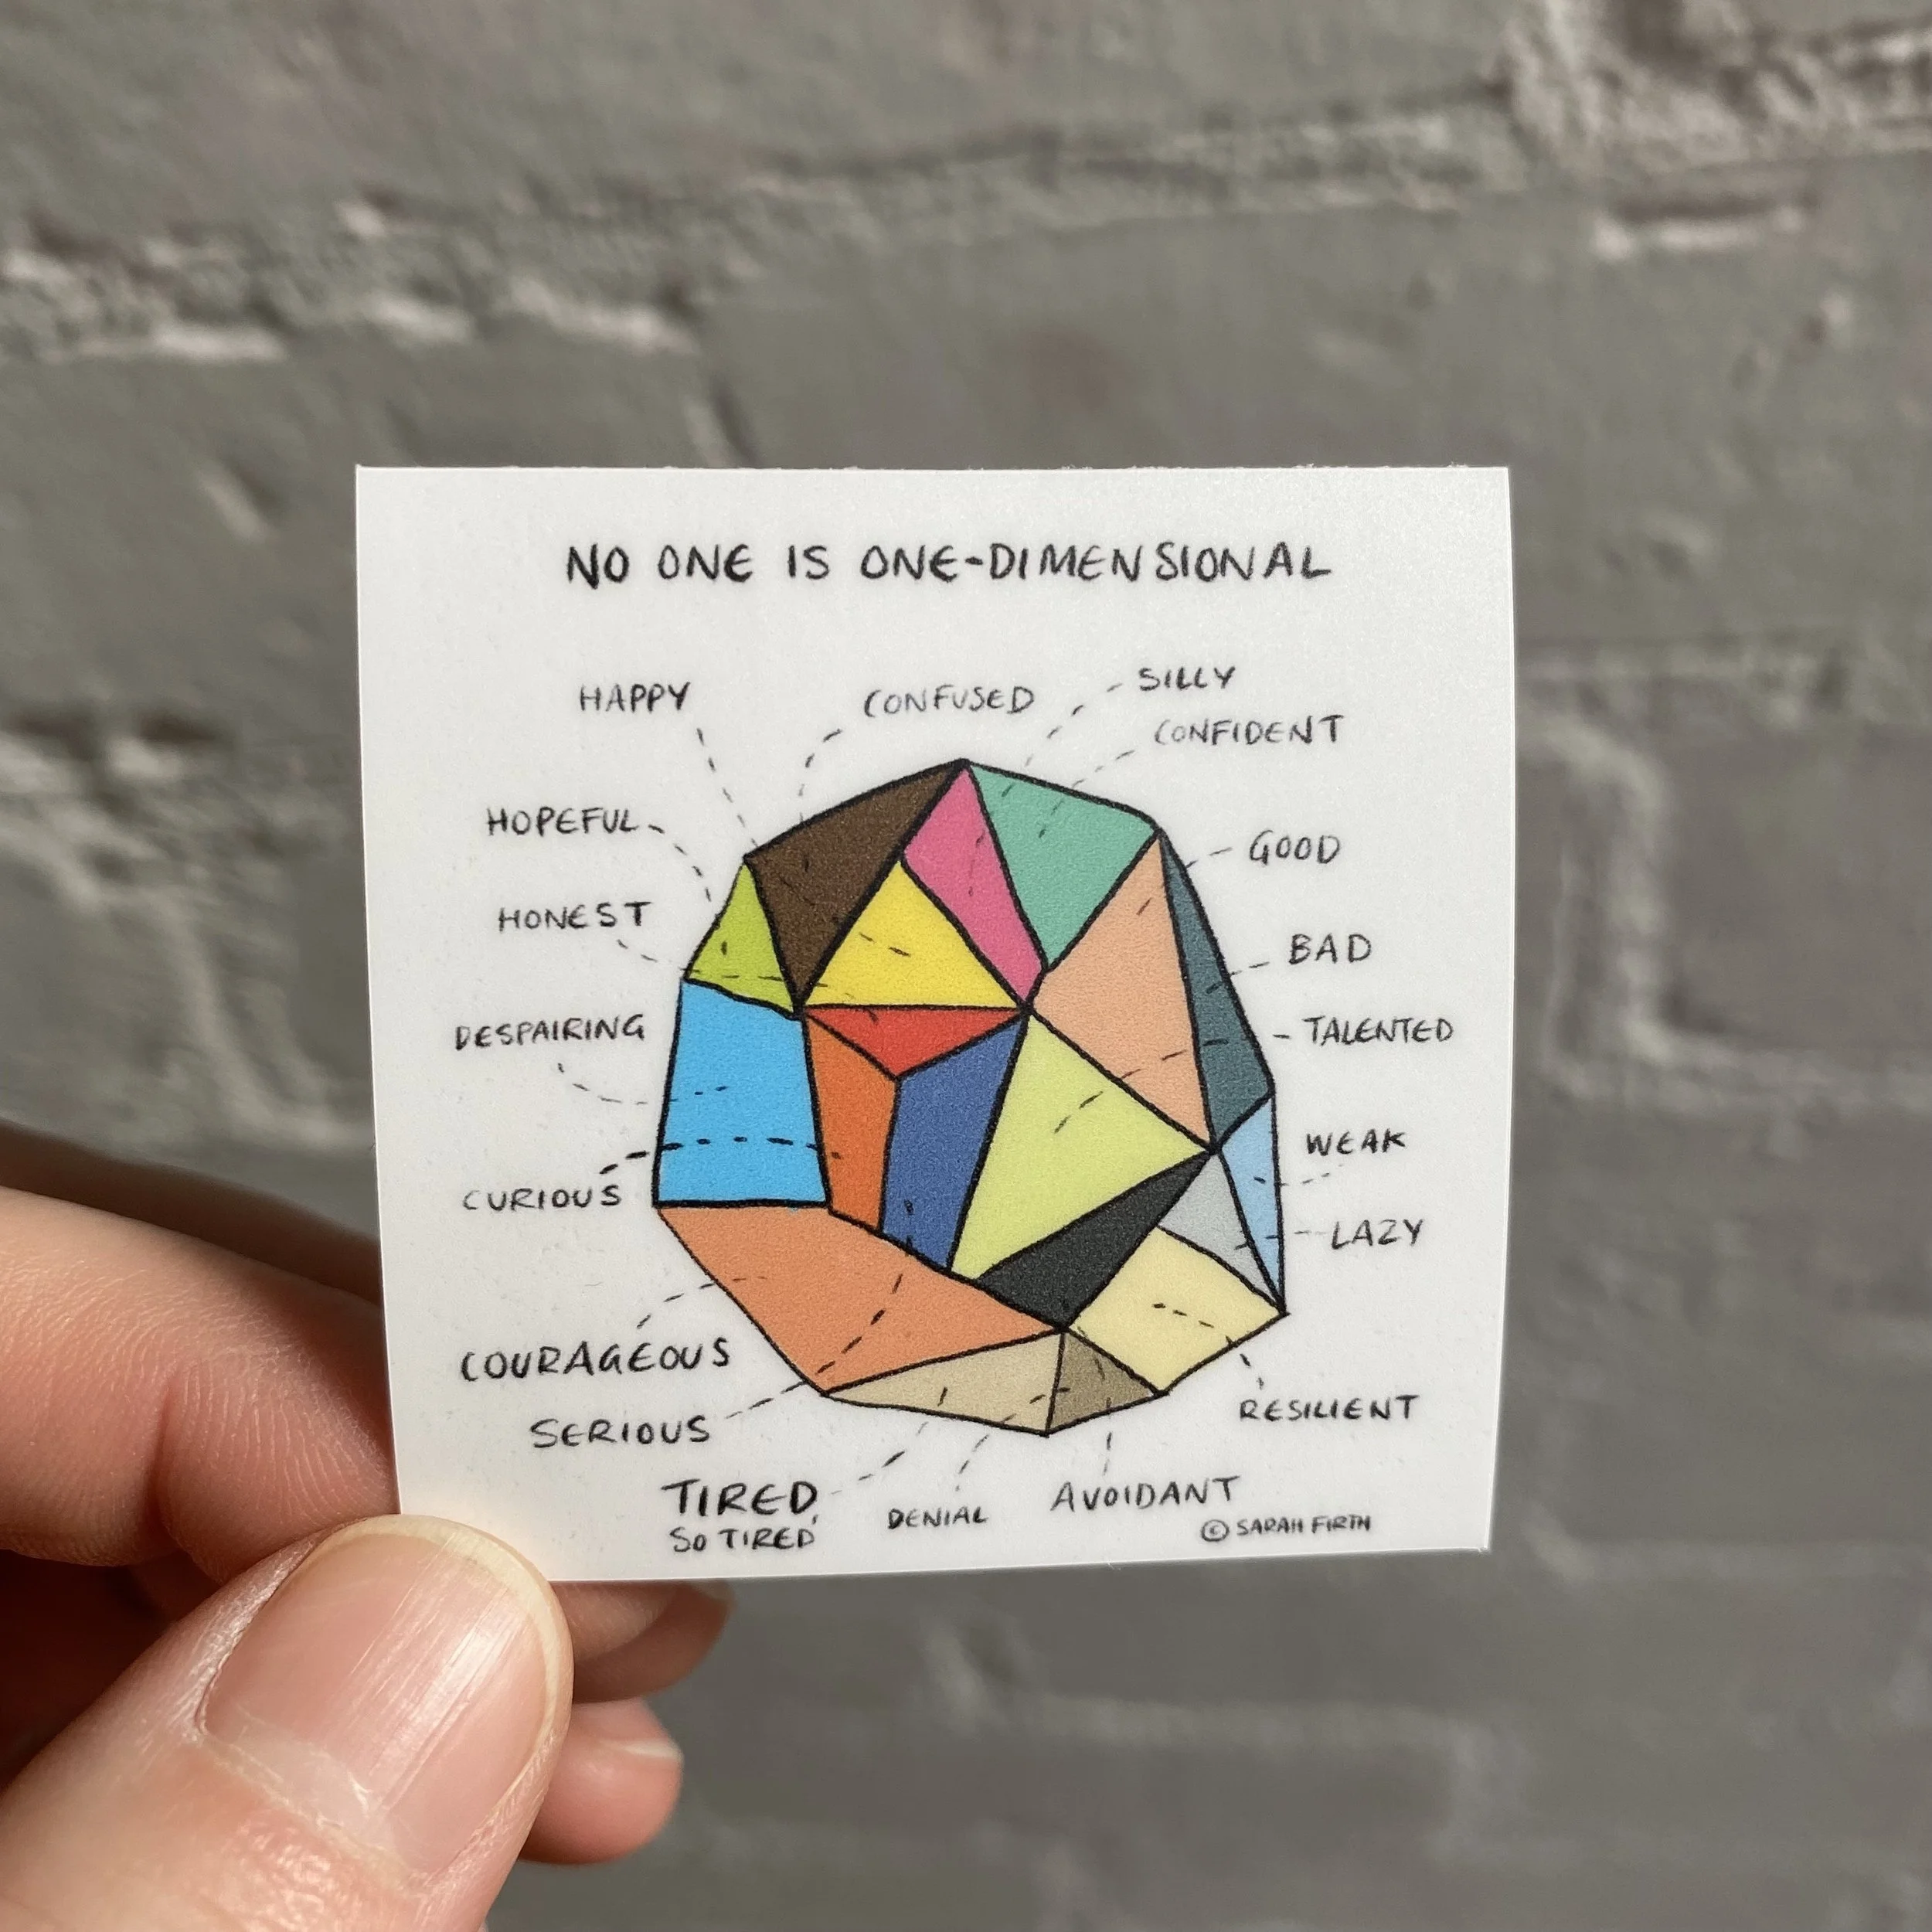 NO ONE IS ONE-DIMENSIONAL
HAPPY
CONFUSED
SILLY
CONFIDENT
HOPEFUL
GOOD
HONEST
BAD
DESPAIRING
TALENTED
WEAK
CURIOUS
LAZY
COURAGEOUS
RESILIENT
SERIOUS
TIRED,
SO TIRED
DENIAL
AVOIDANT
© SARAH FIRTH